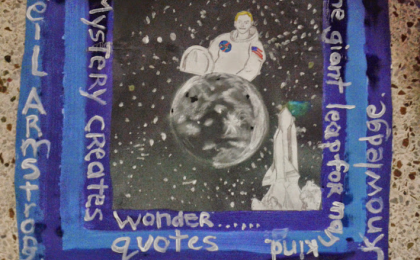 eil ARmstrong
Mystery creates
wonder......
quotes
ne giant leap for man
kind
Knowledge.